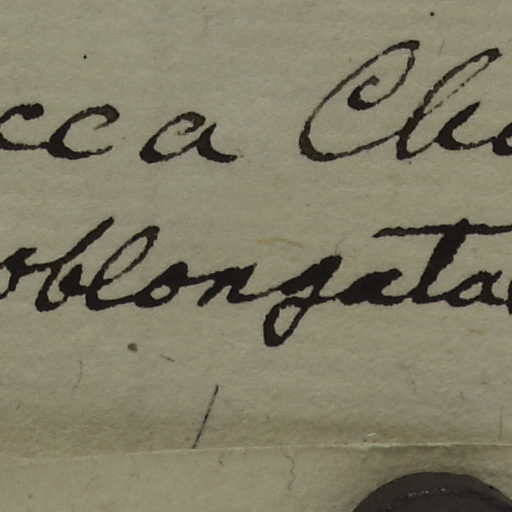 cca Cha
oblongata